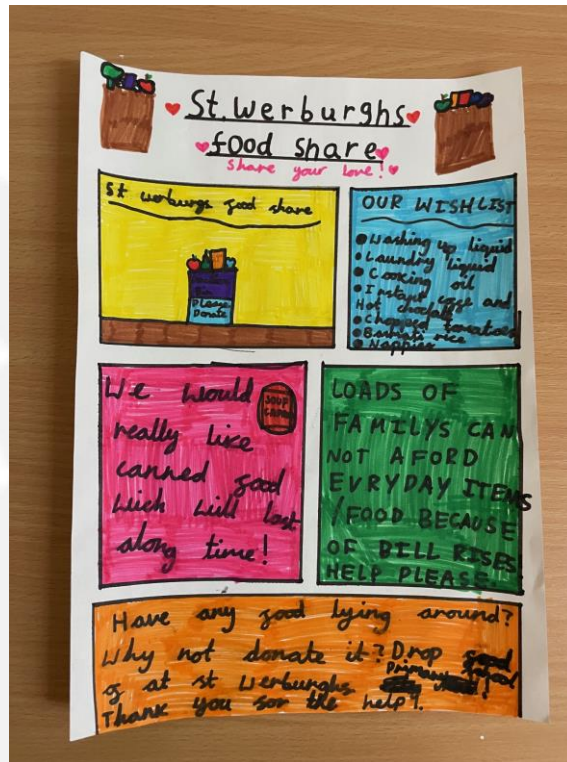 St. Werburghs
food share
share your love!
St werburgs food share
Please
Donate
OUR WISHLIST
Washing up liquid
Laundry liquid
Cooking oil
Instant coffe and
Hot choclate
Chopped tomatoes
Basmati rice
Nappies
We would
really like
canned food
wich will last
along time!
SOUP
LOADS OF
FAMILYS CAN
NOT AFORD
EVRYDAY ITEMS
/FOOD BECAUSE
OF BILL RISES
HELP PLEASE
Have any food lying around?
Why not donate it? Drop food
of at st Werburghs Primary school!
Thank you for the help!